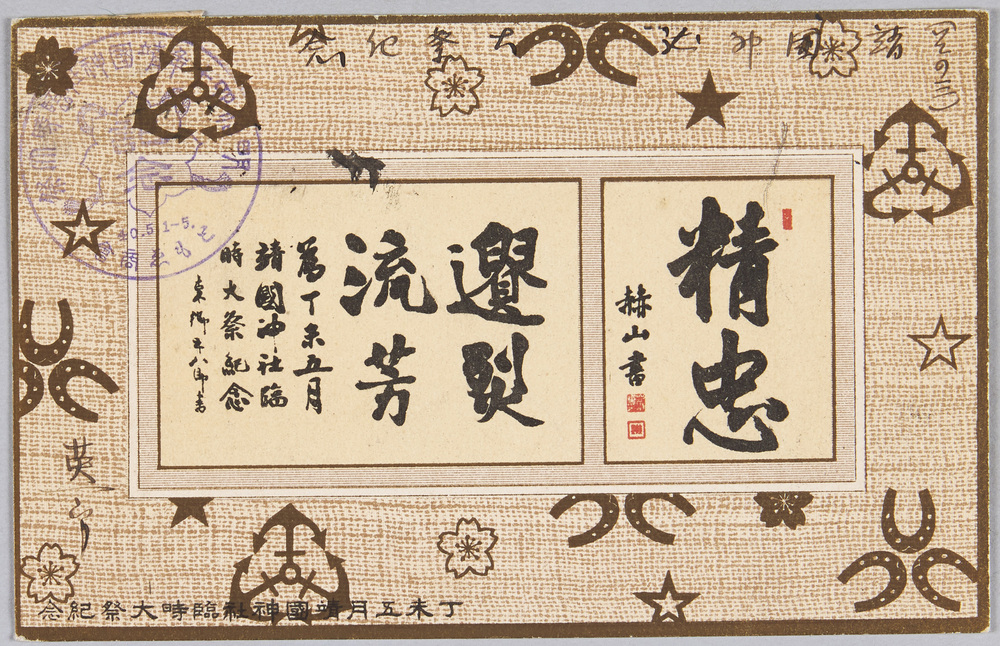 其の三
靖國神社大祭紀念
精忠
赫山書
遺烈
流芳
爲丁未五月
靖國神社臨
時大祭紀念
東郷平八郎書
40.5.1-5.
丁未五月靖國神社臨時大祭紀念